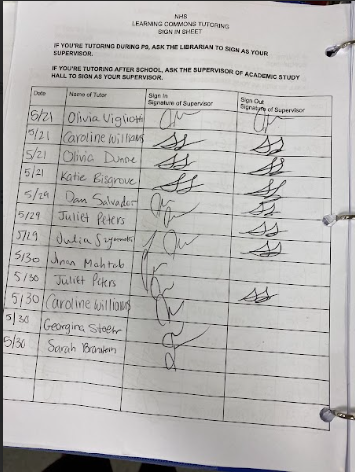 NHS
LEARNING COMMONS TUTORING
SIGN IN SHEET
IF YOU'RE TUTORING DURING P9, ASK THE LIBRARIAN TO SIGN AS YOUR
SUPERVISOR.
IF YOU'RE TUTORING AFTER SCHOOL, ASK THE SUPERVISOR OF ACADEMIC STUDY
HALL TO SIGN AS YOUR SUPERVISOR.
Date Name of Tutor Sign In Signature of Supervisor Sign Out Signature of Supervisor
5/21 Olivia
5/21 Caroline Williams
5/21 Olivia Dunne
5/21 Katie Bisgrove
5/29 Dan Salvador
5/29 Juliet Peters
5/29 Julia
5/30 Mahtab
5/30 Juliet Peters
5/30 Caroline Williams
5/30 Georgina
5/30 Sarah